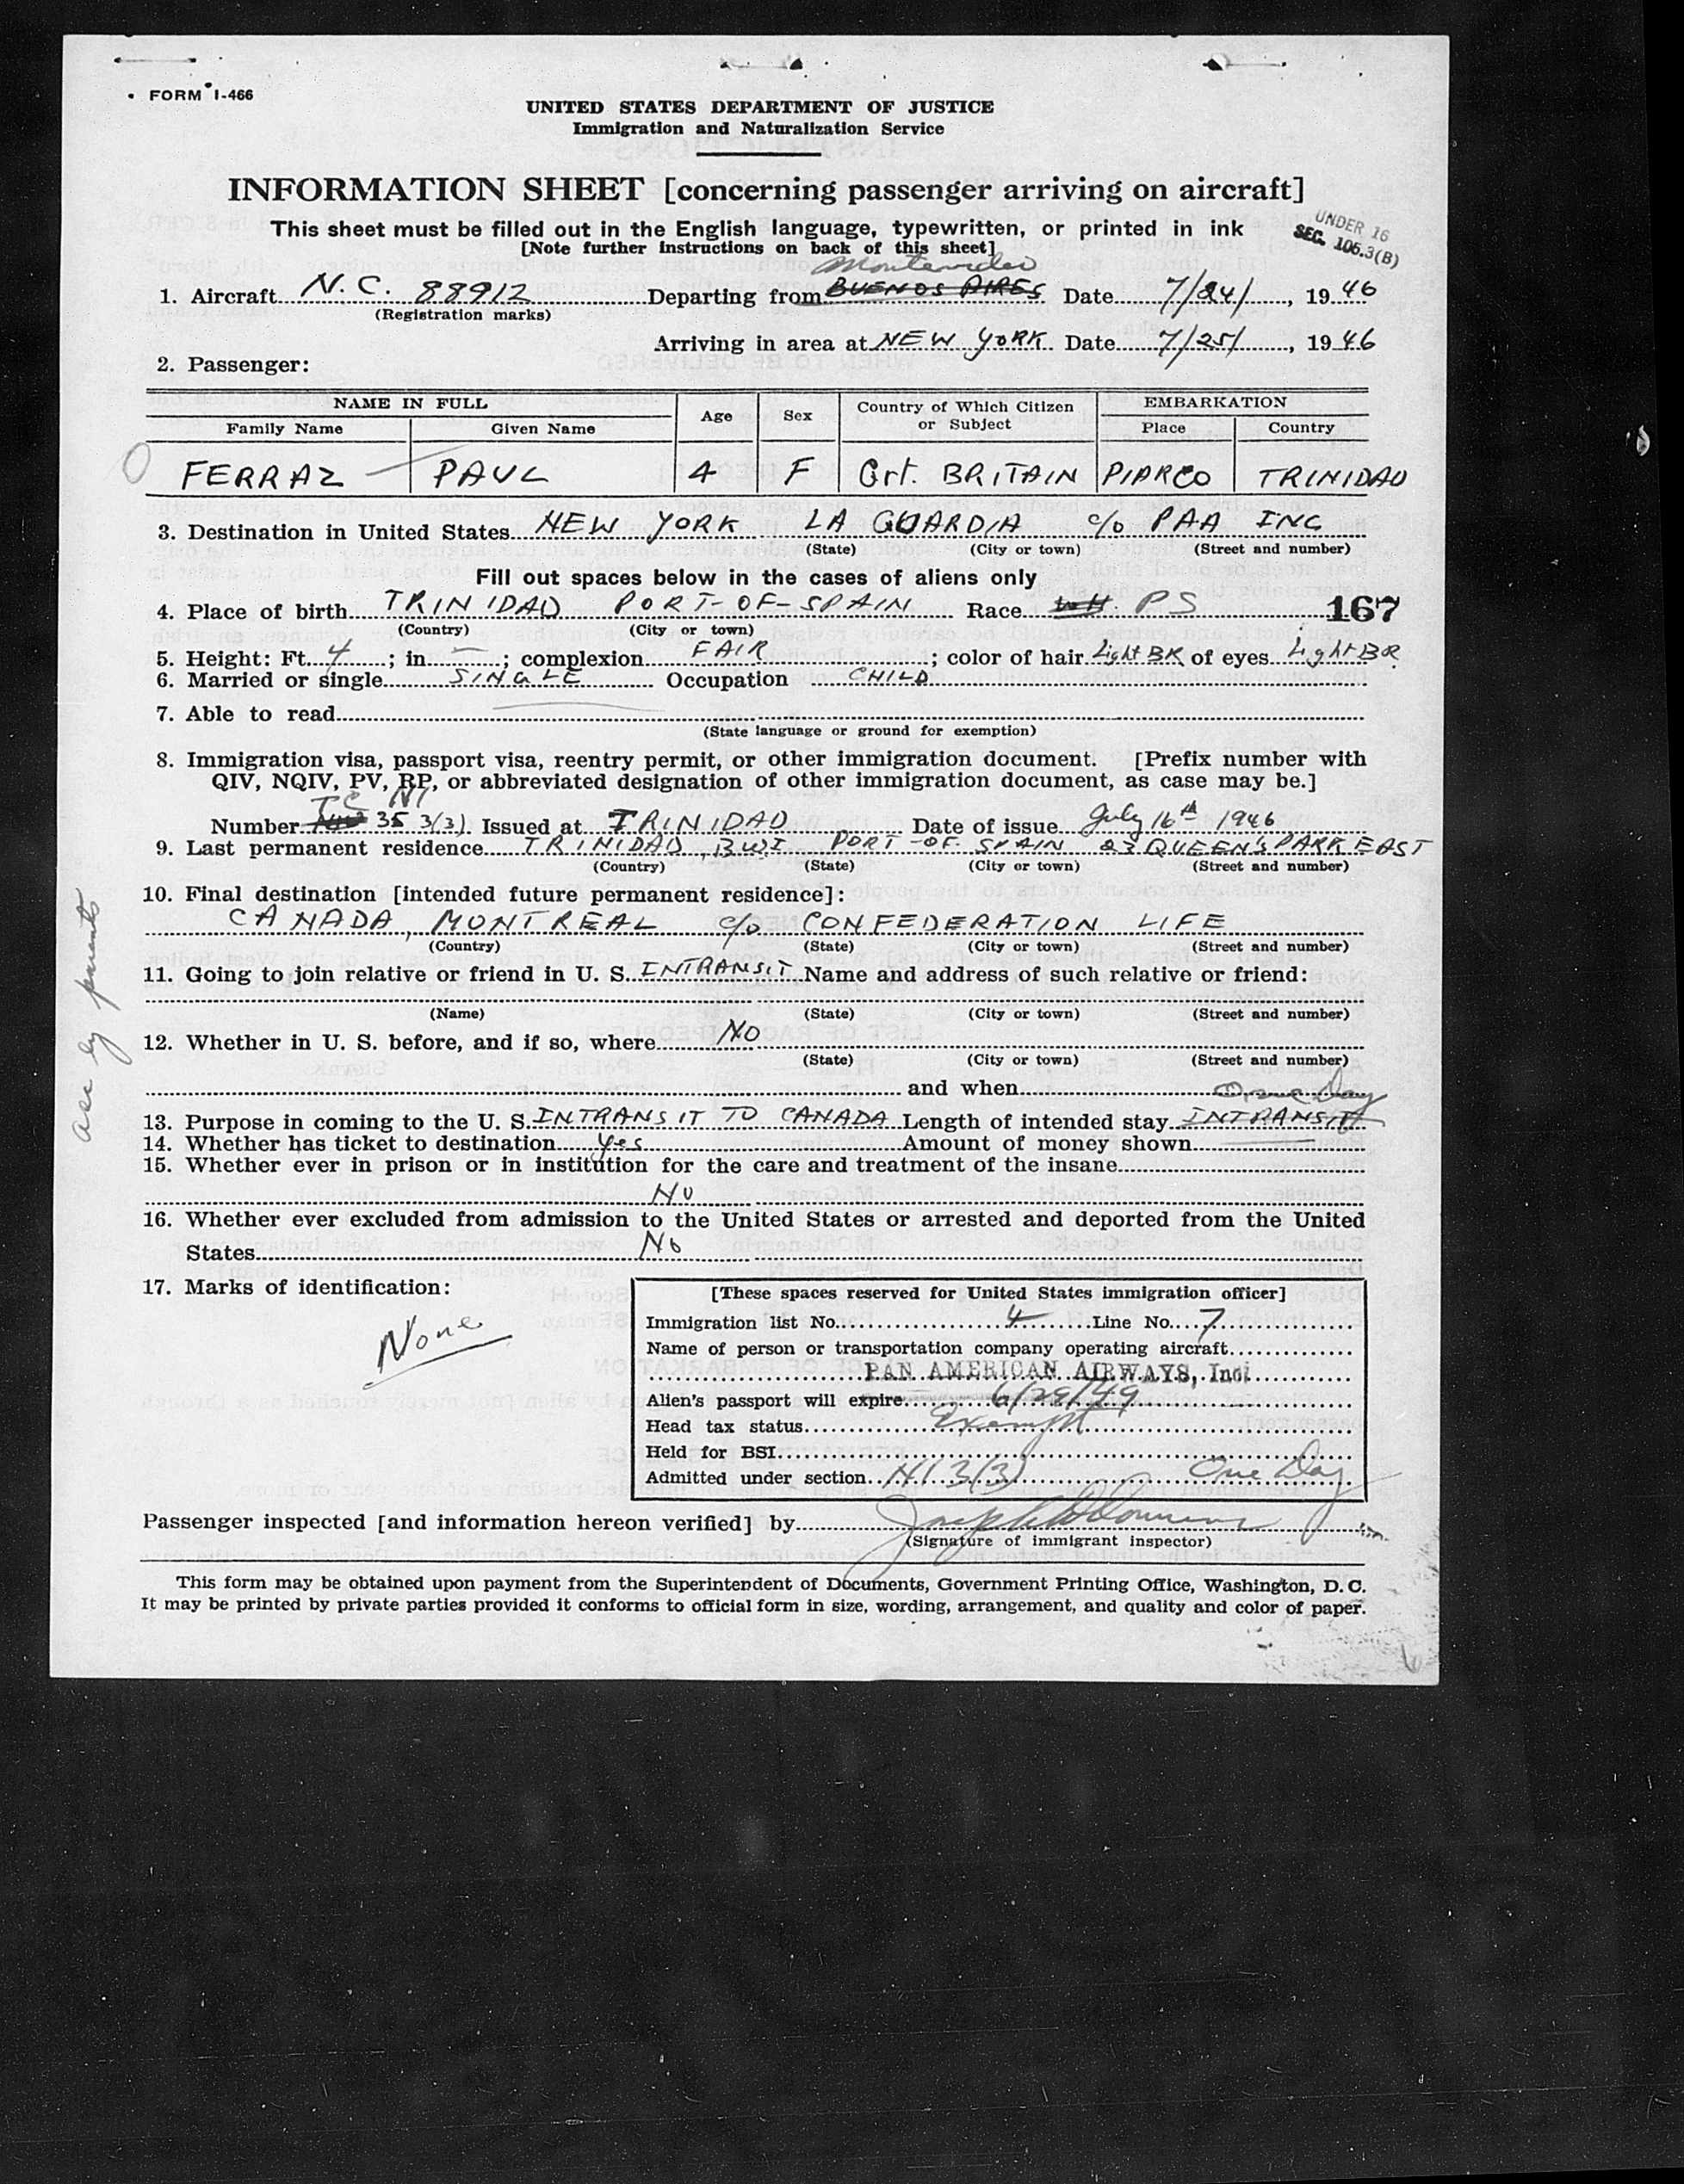 FORM I-466
UNITED STATES DEPARTMENT OF JUSTICE
Immigration and Naturalization Service
INFORMATION SHEET [concerning passenger arriving on aircraft]
This sheet must be filled out in the English language, typewritten, or printed in ink
[Note further instructions on back of this sheet]
UNDER 16
SEC. 106.3(B)
Montevideo
1. Aircraft N.C. 88912 Departing from BUENOS AIRES Date 7/24/, 1946
(Registration marks)
Arriving in area at NEW YORK Date 7/25/, 1946
2. Passenger:
NAME IN FULL Age Sex Country of Which Citizen or Subject EMBARKATION
Family Name Given Name Place Country
FERRAZ PAUL 4 F Grt. BRITAIN PIARCO TRINIDAD
3. Destination in United States NEW YORK LA GUARDIA c/o PAA INC
(State) (City or town) (Street and number)
Fill out spaces below in the cases of aliens only
4. Place of birth TRINIDAD PORT-OF-SPAIN Race WH. PS 167
(Country) (City or town)
5. Height: Ft. 4; in. —; complexion FAIR; color of hair Light BR of eyes Light BR
6. Married or single SINGLE Occupation CHILD
7. Able to read
(State language or ground for exemption)
8. Immigration visa, passport visa, reentry permit, or other immigration document. [Prefix number with
QIV, NQIV, PV, RP, or abbreviated designation of other immigration document, as case may be.]
TC NI
Number 35 3(3). Issued at TRINIDAD Date of issue July 16th 1946
9. Last permanent residence TRINIDAD, BWI PORT-OF-SPAIN 23 QUEEN'S PARK EAST
(Country) (State) (City or town) (Street and number)
10. Final destination [intended future permanent residence]:
CANADA, MONTREAL c/o CONFEDERATION LIFE
(Country) (State) (City or town) (Street and number)
11. Going to join relative or friend in U. S. INTRANSIT Name and address of such relative or friend:
(Name) (State) (City or town) (Street and number)
12. Whether in U. S. before, and if so, where NO
(State) (City or town) (Street and number)
and when
One Day
13. Purpose in coming to the U. S. INTRANSIT TO CANADA Length of intended stay INTRANSIT
14. Whether has ticket to destination Yes Amount of money shown
15. Whether ever in prison or in institution for the care and treatment of the insane
No
16. Whether ever excluded from admission to the United States or arrested and deported from the United
States No
17. Marks of identification:
None
[These spaces reserved for United States immigration officer]
Immigration list No. 4 Line No. 7
Name of person or transportation company operating aircraft
PAN AMERICAN AIRWAYS, Inc.
Alien's passport will expire 6/29/49
Head tax status Exempt
Held for BSI
Admitted under section NI 3(3) One Day
Passenger inspected [and information hereon verified] by
(Signature of immigrant inspector)
This form may be obtained upon payment from the Superintendent of Documents, Government Printing Office, Washington, D. C.
It may be printed by private parties provided it conforms to official form in size, wording, arrangement, and quality and color of paper.
acc by parents